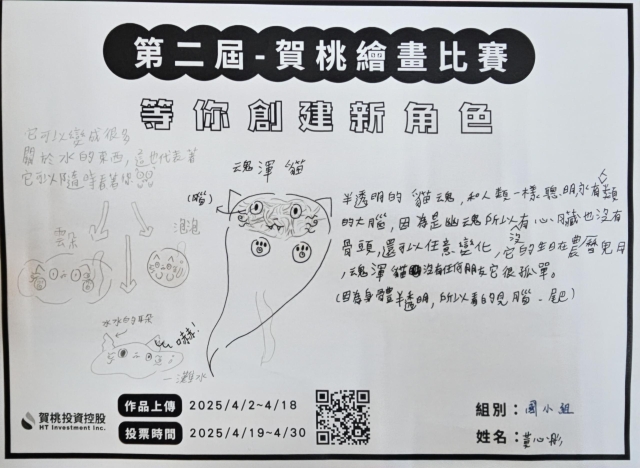 第二屆-賀桃繪畫比賽
等你創建新角色
它可以變成很多
關於水的東西,這也代表著
它可以隨時看著你
雲朵
泡泡
水水的耳朵
嘻嘻!
一灘水
魂渾貓
(腦)
半透明的貓魂,和人類一樣聰明,有人類
的大腦,因為是幽魂所以沒有心臟也沒有
骨頭,還可以任意變化,它的生日在農曆鬼月
,魂渾貓沒有任何朋友它很孤單。
(因為身體半透明,所以看的見腦、尾)
賀桃投資控股
HT Investment Inc.
作品上傳 2025/4/2~4/18
投票時間 2025/4/19~4/30
組別:國小組
姓名: